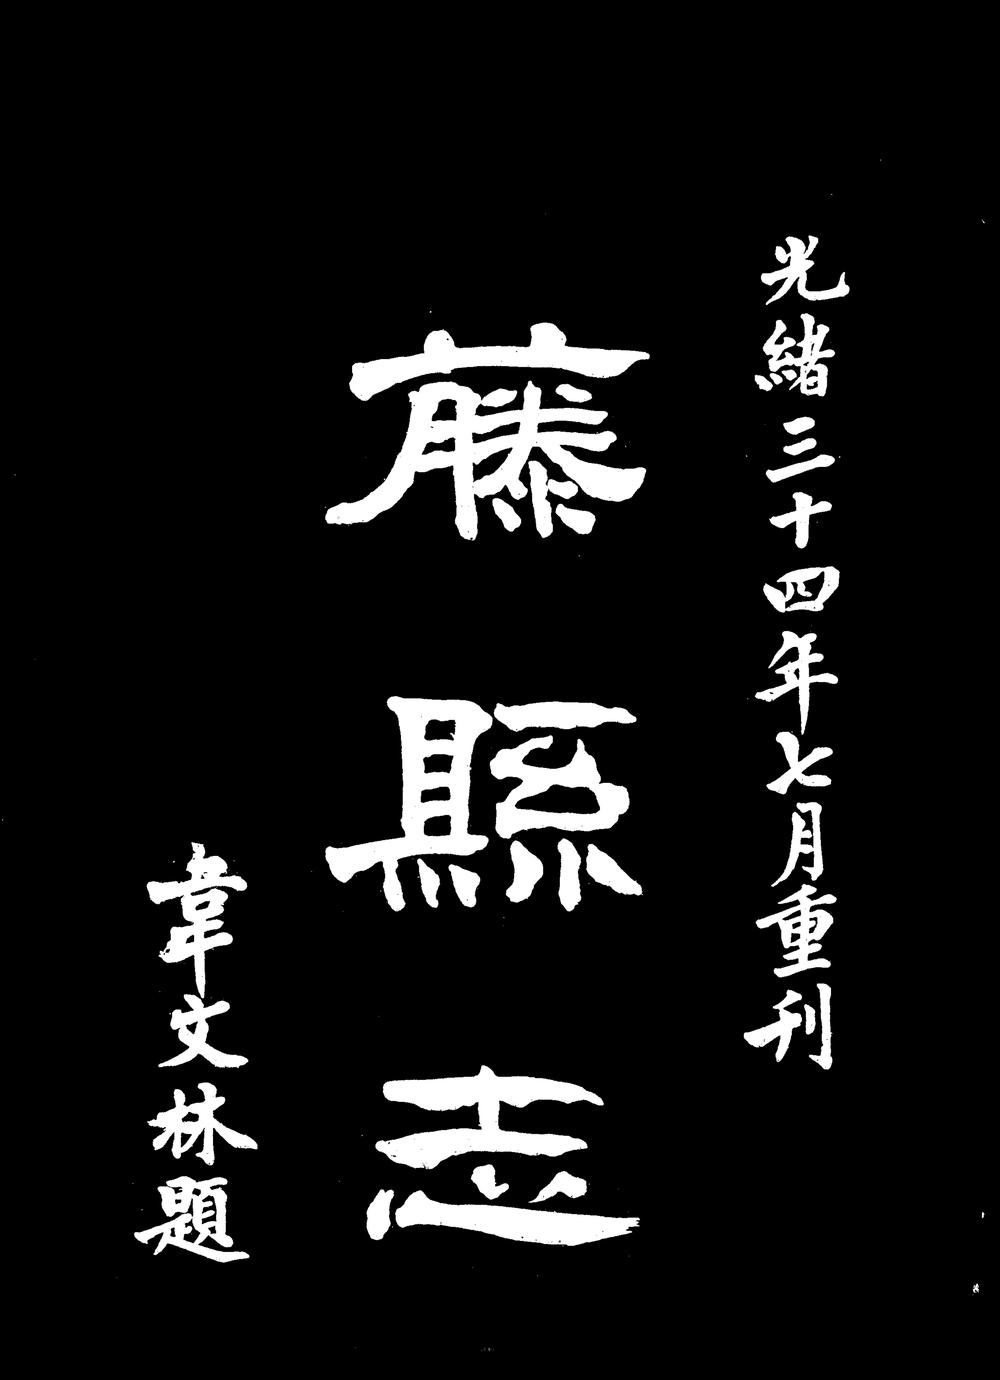 光緒三十四年七月重刊
藤縣志
韋文林題